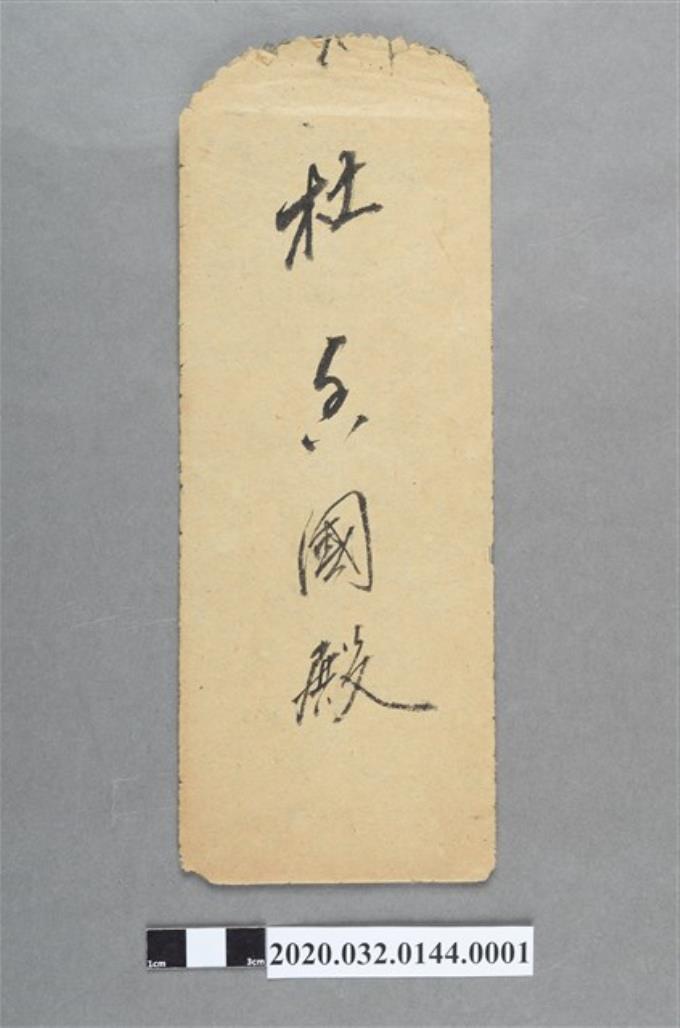 杜香國殿
1cm 3cm 2020.032.0144.0001